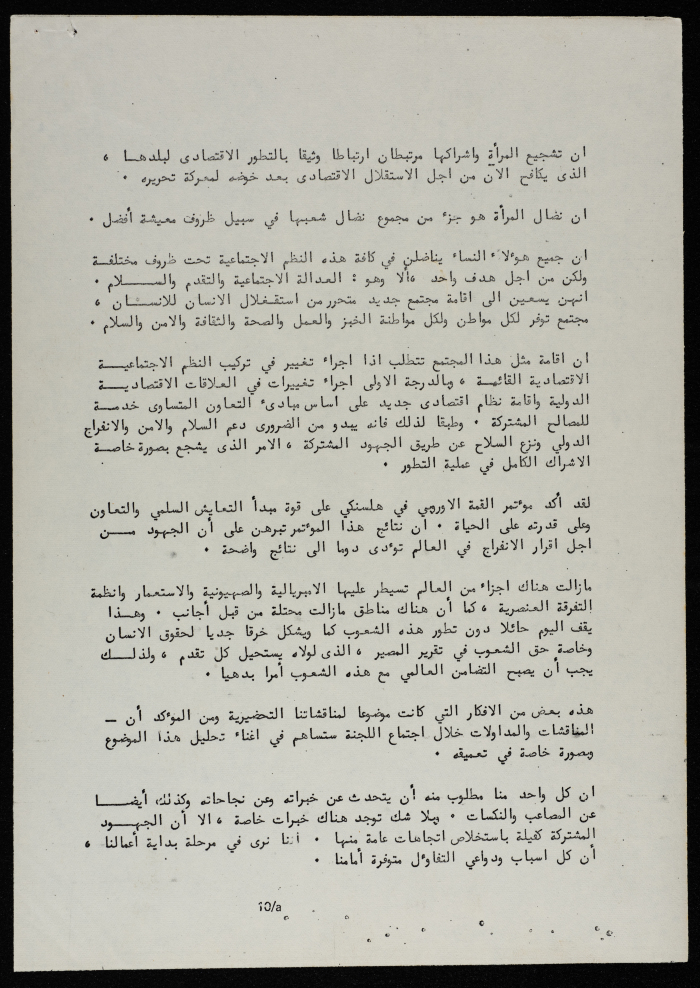 ان تشجيع المرأة واشراكها مرتبطان ارتباطا وثيقا بالتطور الاقتصادى لبلدهــا ،
الذى يكافح الآن من اجل الاستقلال الاقتصادى بعد خوضه لمعركة تحريره .
ان نضال المرأة هو جزء من مجموع نضال شعبها في سبيل ظروف معيشة أفضل .
ان جميع هوٴلاء النساء يناضلن في كافة هذه النظم الاجتماعية تحت ظروف مختلفة
ولكن من اجل هدف واحد ،ألا وهو : العدالة الاجتماعية والتقدم والســـلام .
انهن يسعين الى اقامة مجتمع جديد متحرر من استفـغلال الانسان للانســان ،
مجتمع توفر لكل مواطن ولكل مواطنة الخبز والعمل والصحة والثقافة والامن والسلام .
ان اقامة مثل هذا المجتمع تتطلب اذا اجراء تغيير في تركيب النظم الاجتماعيــة
الاقتصادية القائمة ، وبالدرجة الاولى اجراء تغييرات في العلاقات الاقتصاديــة
الدولية واقامة نظام اقتصادى جديد على اساس مبادىء التعاون المتساوى خدمــة
للمصالح المشتركة . وطبقا لذلك فانه يبدو من الضرورى دعم السلام والامن والانفراج
الدولي ونزع السلاح عن طريق الجهود المشتركة ، الامر الذى يشجع بصورة خاصـة
الاشراك الكامل في عملية التطور .
لقد أكد موٴتمر القمة الاوروبي في هلسنكي على قوة مبدأ التعايش السلمي والتعاون
وعلى قدرته على الحياة . ان نتائج هذا الموٴتمر تبرهن على أن الجهود مـــن
اجل اقرار الانفراج في العالم توٴدى دوما الى نتائج واضحة .
مازالت هناك اجزاء من العالم تسيطر عليها الامبريالية والصهيونية والاستعمار وانظمة
التفرقة العنصرية ، كما أن هناك مناطق مازالت محتلة من قبل أجانب . وهــذا
يقف اليوم حائلا دون تطور هذه الشعوب كما ويشكل خرقا جديا لحقوق الانسان
وخاصة حق الشعوب في تقرير المصير ، الذى لولاه يستحيل كل تقدم ، ولذلــك
يجب أن يصبح التضامن العالمي مع هذه الشعوب أمرا بدهيا .
هذه بعض من الافكار التي كانت موضوعا لمناقشاتنا التحضيرية ومن الموٴكد أن ــ
المناقشات والمداولات خلال اجتماع اللجنة ستساهم في اغناء تحليل هذا الموضوع
وبصورة خاصة في تعميقه .
ان كل واحد منا مطلوب منه أن يتحدث عن خبراته وعن نجاحاته وكذلك، أيضــا
عن المصاعب والنكسات . وبلا شك توجد هناك خبرات خاصة ، الا أن الجهــود
المشتركة كفيلة باستخلاص اتجاهات عامة منها . اننا نرى في مرحلة بداية أعمالنا ،
أن كل اسباب ودواعي التفاوٴل متوفرة أمامنا .
10/a